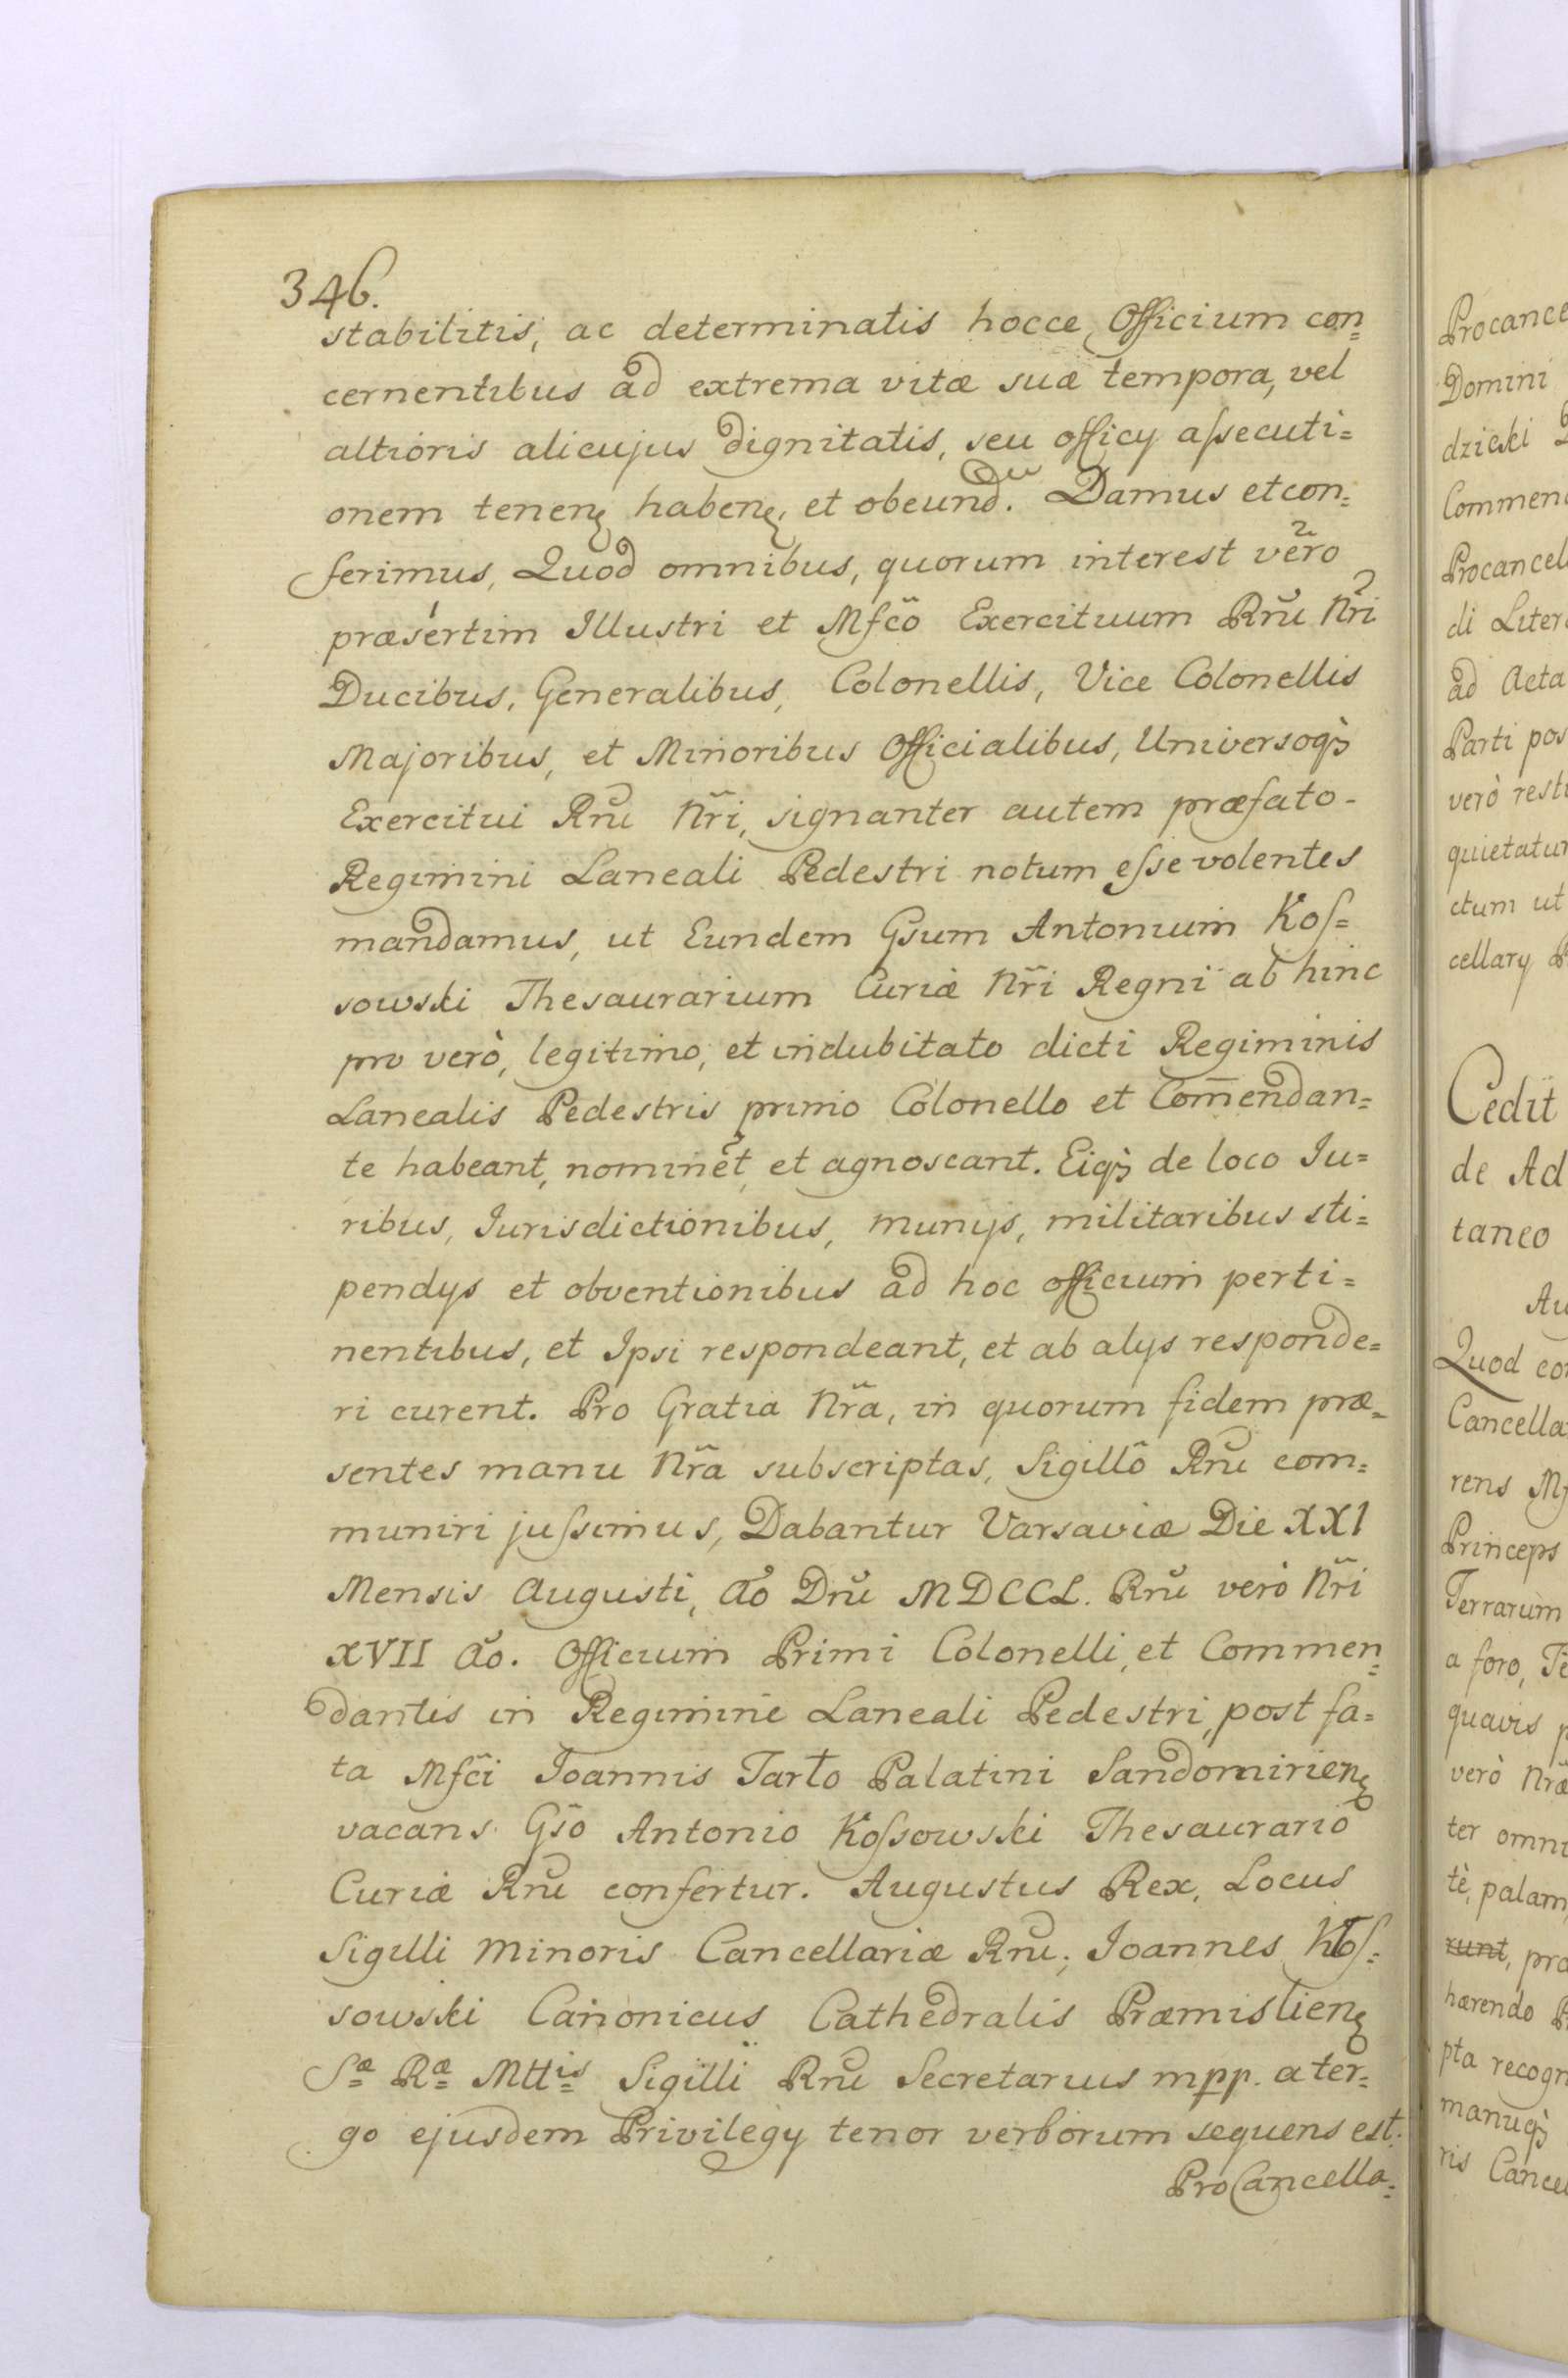 346.
stabilitis, ac determinatis hocce Officium con=
cernentibus ad extrema vitæ suæ tempora, vel
altioris alicujus dignitatis, seu officÿ aſsecuti=
onem tenenꝫ habenꝫ, et obeundu. Damus et con=
ferimus, Quod omnibus, quorum interest vero
præsértim Illustri et Mfcõ Exercituum Rnũ Nrĩ
Ducibus, Generalibus, Colonellis, Vice Colonellis
Majoribus, et Minoribus Officialibus, Universoqꝫ
Exercitui Rnũ Nrĩ, signanter autem præfato-
Regimini Laneali Pedestri notum eſse volentes
mandamus, ut Eundem Gsum Antonium Koſ=
sowski Thesaurarium Curiæ Nrĩ Regni ab hinc
pro verò, legitimo, et indubitato dicti Regiminis
Lanealis Pedestris primo Colonello et Com̅endan=
te habeant, nominẽt, et agnoscant. Eiqꝫ de loco Iu=
ribus, Iurisdictionibus, munÿs, militaribus sti=
pendÿs et obventionibus ad hoc officium perti=
nentibus, et Ipsi respondeant, et ab alÿs responde=
ri curent. Pro Gratia Nrã, in quorum fidem præ=
sentes manu Nrã subscriptas, Sigillõ Rnũ com=
muniri juſsimus, Dabantur Varsaviæ Die XXI
Mensis Augusti, Aõ Dnũ MDCCL. Rnũ verò Nrĩ
XVII Aõ. Officium Primi Colonelli, et Commen=
dantis in Regimine Laneali Pedestri, post fa=
ta Mfcĩ Joannis Tarło Palatini Sandomirienꝫ
vacans Gsõ Antonio Koſsowski Thesaurario
Curiæ Rnũ confertur. Augustus Rex, Locus
Sigilli Minoris Cancellariæ Rnũ; Joannes Koſ=
sowski Canonicus Cathedralis Præmislienꝫ
Sæ Ræ Mttis Sigilli Rnũ Secretarius mpp. a ter=
go ejusdem Privilegÿ tenor verborum sequens est.
ProCancella=
Procance
Domini
dzieski
Commen
Procancel
di Liter
ad Acta
Parti pos
verò resti
quietatur
ctum ut
cellarÿ
Cedit
de Ad
taneo
Au
Quod co
Cancella
rens
Princeps
Terrarum
a foro,
quavis
verò Nrã
ter omni
tè, palam
runt, pro
hærendo
pta recogn
manuqꝫ
ris Cancel